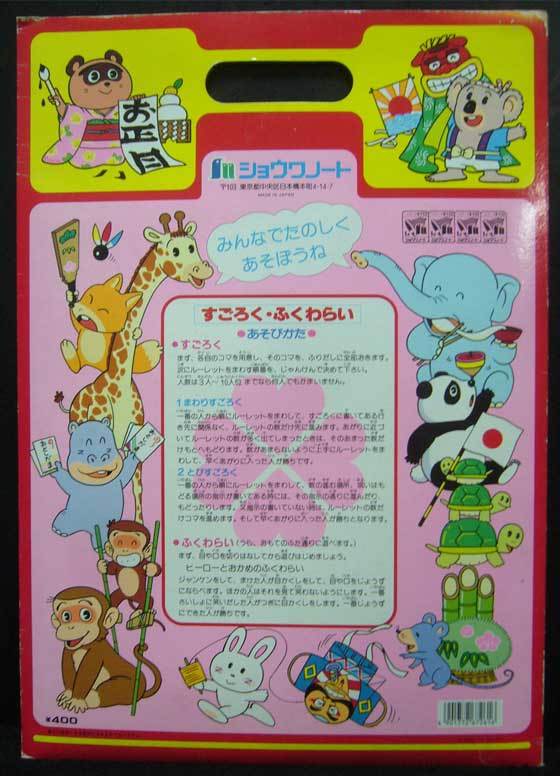 お正月
ショウワノート
〒103 東京都中央区日本橋本町4-14-7
MADE IN JAPAN
みんなでたのしく
あそぼうね
すごろく・ふくわらい
●あそびかた●
●すごろく
まず、各自のコマを用意し、そのコマを、ふりだしに全部おきます。
次にルーレットをまわす順番を、じゃんけんで決めて下さい。
人数は3人〜10人位までなら何人でもかまいません。
1まわりすごろく
一番の人から順にルーレットをまわして、すごろくに書いてある行
き先に関係なく、ルーレットの数だけ先に進みます。あがりに近づ
いてルーレットの数が多く出てしまったときは、そのあまった数だ
けもとへもどります。数があまらないように上手にルーレットをま
わして、早くあがりに入った人が勝ちです。
2とびすごろく
一番の人から順にルーレットをまわして、数の進む場所、或いはも
どる場所の指示が書いてある時には、その指示の通りに進んだり、
もどったりします。又指示の書いていない時は、ルーレットの数だ
けコマを進めます。そして早くあがりに入った人が勝ちとなります。
●ふくわらい(うら、おもてのふた通りに遊べます。)
まず、目や口を切りはなしてから遊びはじめましょう。
ヒーローとおかめのふくわらい
ジャンケンをして、まけた人が目かくしをして、目や口をじょうず
にならべます。ほかの人はそれを見て笑わないようにします。一番
さいしょに笑いだした人がつぎに目かくしをします。一番じょうず
にできた人が勝ちです。
¥400